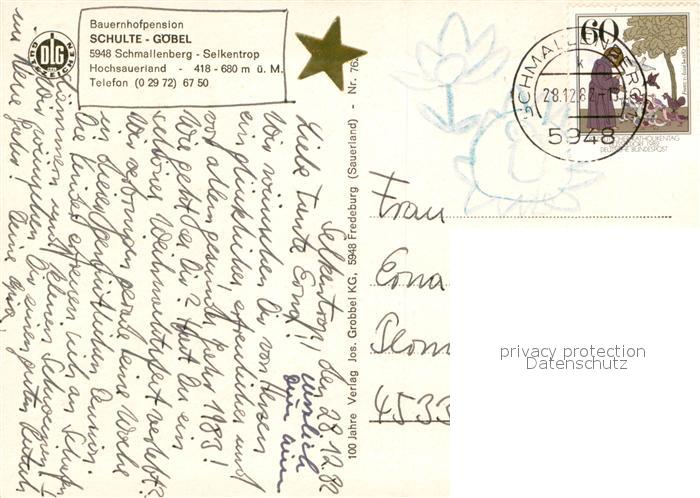 Bauernhofpension
SCHULTE - GÖBEL
5948 Schmallenberg - Selkentrop
Hochsauerland - 418 - 680 m ü. M.
Telefon (0 29 72) 67 50
DLG
GÜTEZEICHEN
Selkentrop, den 28.12.82
Liebe Tante Erna!
Wir wünschen Dir von Herzen
ein glückliches, erfreuliches und
vor allem gesundes Jahr 1983!
Wie geht es Dir? Hast Du ein
schönes Weihnachtsfest verlebt?
Wir verbringen gerade eine Woche
in dieser gemütlichen Pension.
Die Kinder erfreuen sich an
und kleinen Schweinen!
Wir wünschen Dir einen guten Rutsch
ins Neue Jahr! Deine
100 Jahre Verlag Jos. Grobbel KG, 5948 Fredeburg (Sauerland) - Nr. 76
60
DEUTSCHE BUNDESPOST
SCHMALLENBERG 1
k
28.12.82
5948
Frau
Erna
4533
privacy protection
Datenschutz